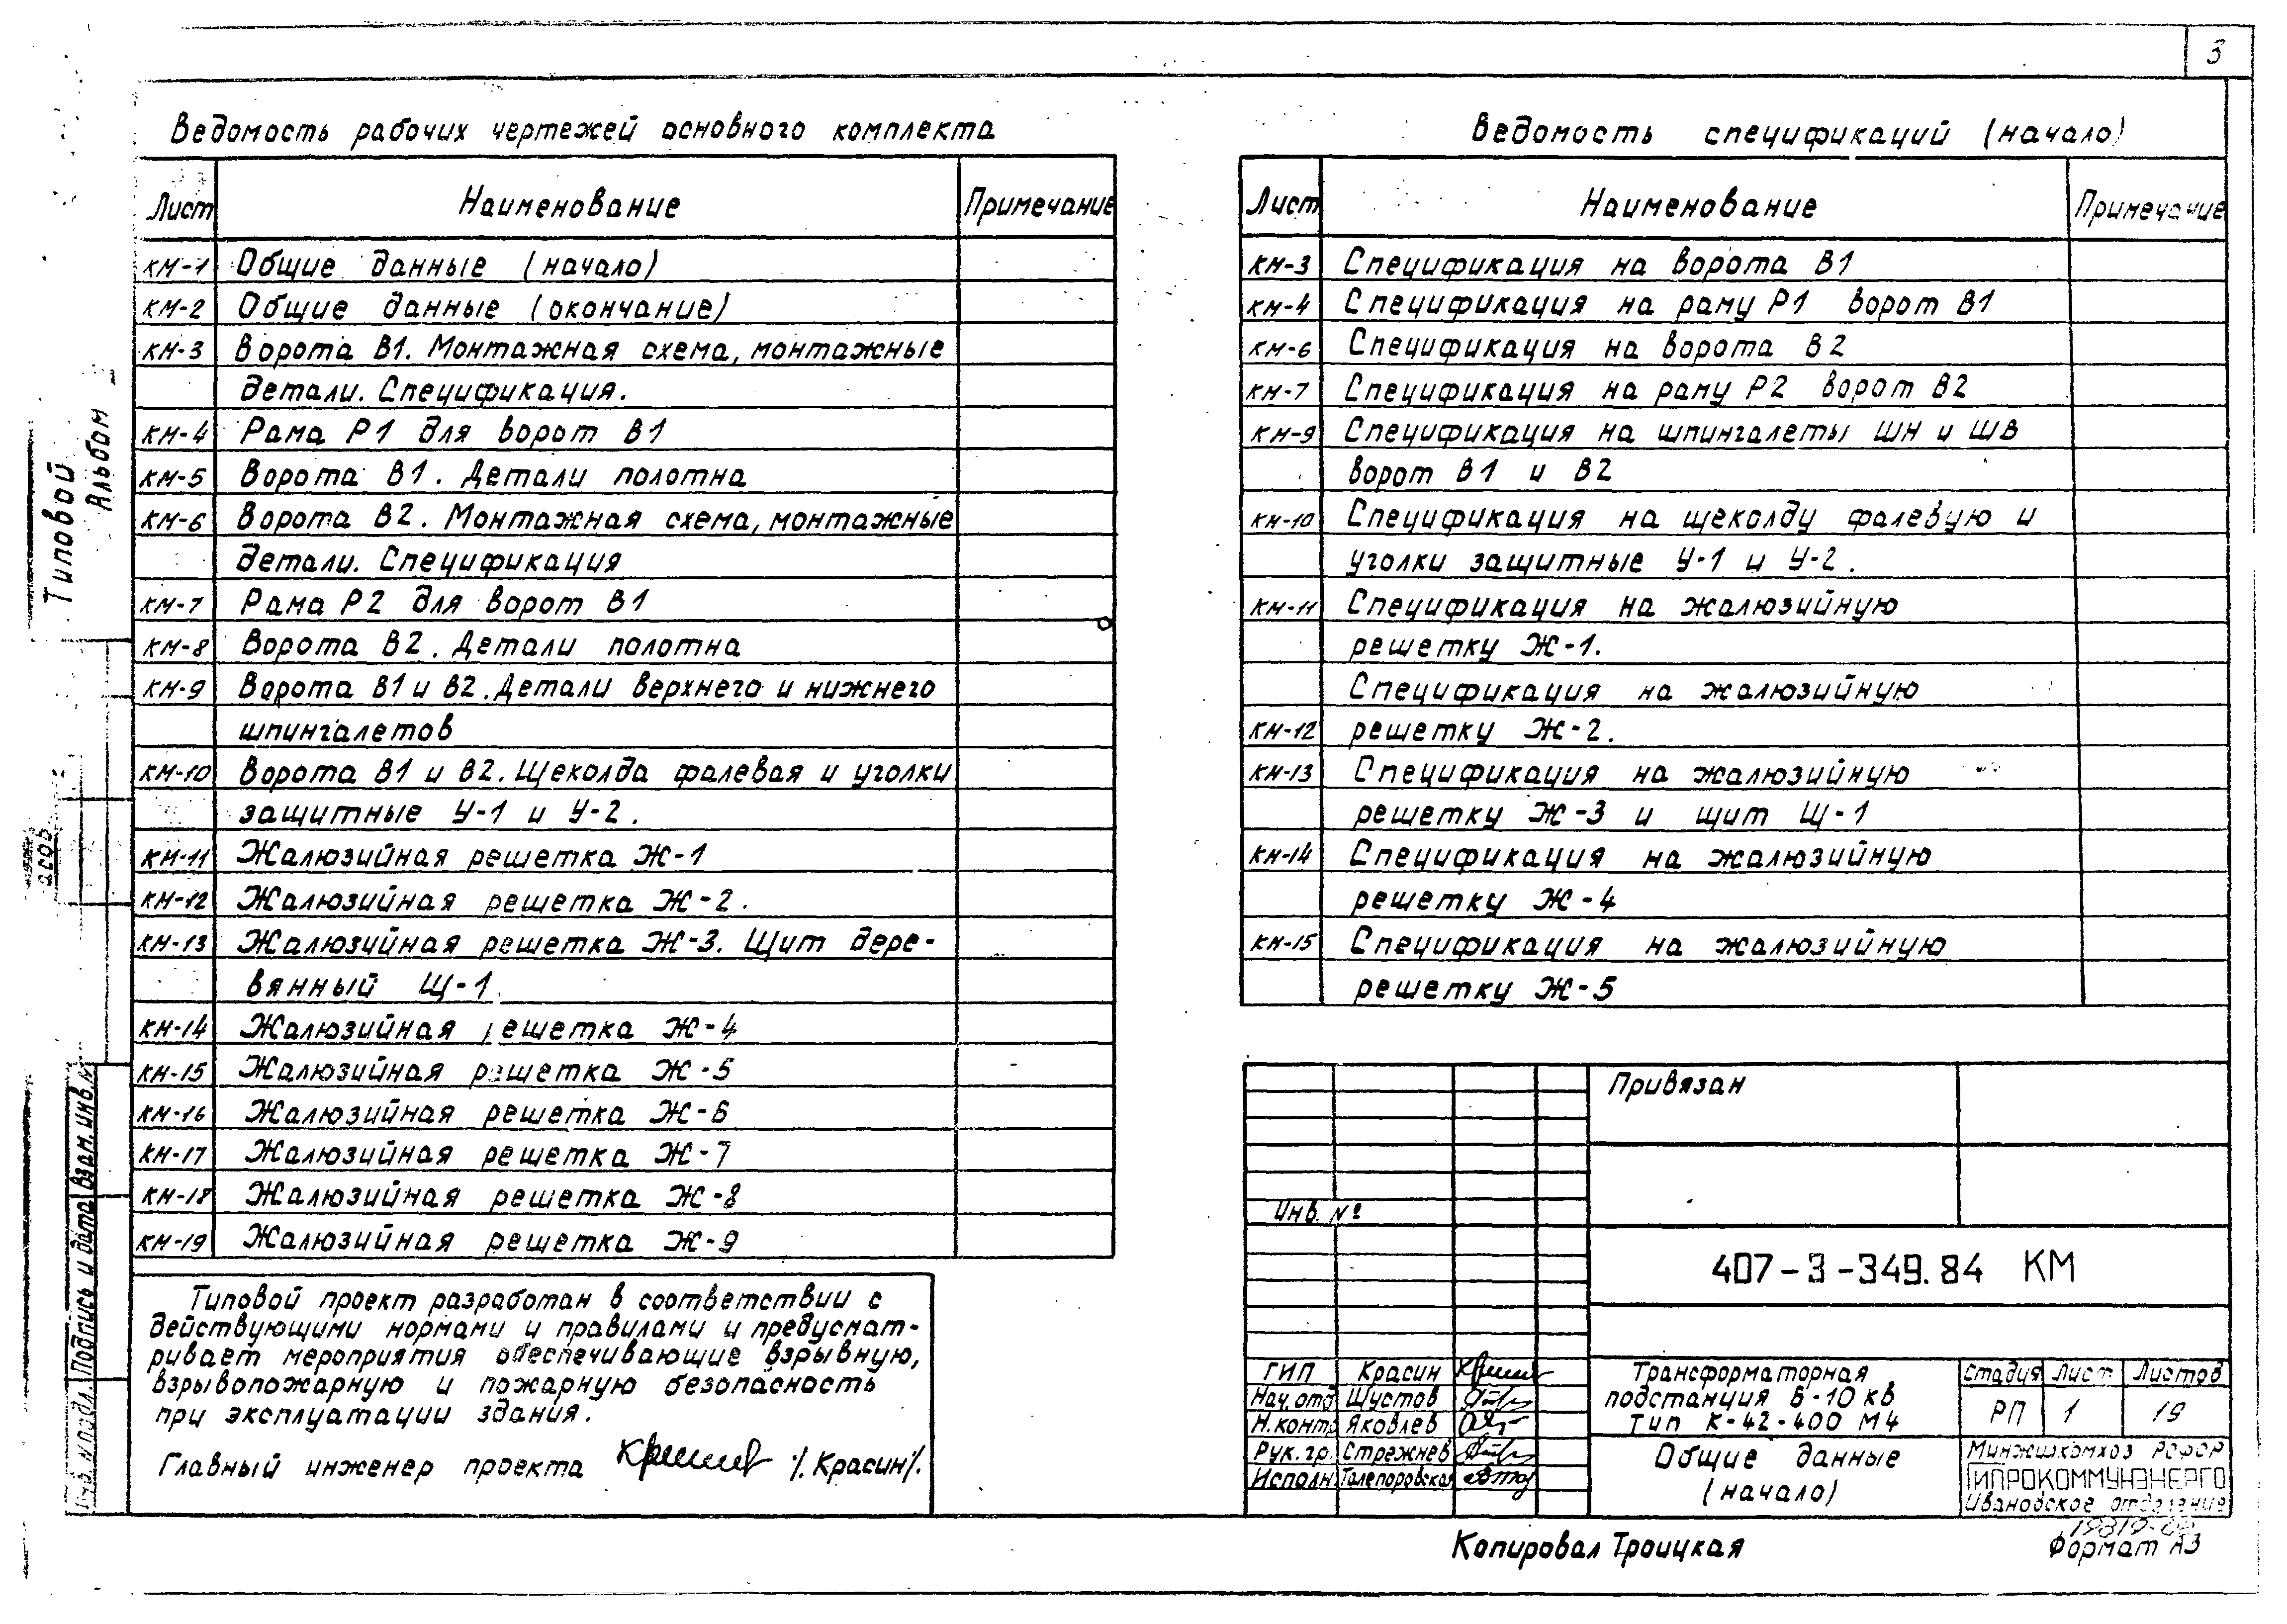 3
Ведомость рабочих чертежей основного комплекта
Лист Наименование Примечание
КМ-1 Общие данные (начало)
КМ-2 Общие данные (окончание)
КМ-3 Ворота В1. Монтажная схема, монтажные
детали. Спецификация.
КМ-4 Рама Р1 для ворот В1
КМ-5 Ворота В1. Детали полотна
КМ-6 Ворота В2. Монтажная схема, монтажные
детали. Спецификация
КМ-7 Рама Р2 для ворот В1
КМ-8 Ворота В2. Детали полотна
КМ-9 Ворота В1 и В2. Детали верхнего и нижнего
шпингалетов
КМ-10 Ворота В1 и В2. Щеколда фалевая и уголки
защитные У-1 и У-2.
КМ-11 Жалюзийная решетка Ж-1
КМ-12 Жалюзийная решетка Ж-2.
КМ-13 Жалюзийная решетка Ж-3. Щит дере-
вянный Щ-1
КМ-14 Жалюзийная решетка Ж-4
КМ-15 Жалюзийная решетка Ж-5
КМ-16 Жалюзийная решетка Ж-6
КМ-17 Жалюзийная решетка Ж-7
КМ-18 Жалюзийная решетка Ж-8
КМ-19 Жалюзийная решетка Ж-9
Типовой проект разработан в соответствии с
действующими нормами и правилами и предусмат-
ривает мероприятия обеспечивающие взрывную,
взрывопожарную и пожарную безопасность
при эксплуатации здания.
Главный инженер проекта /.Красин/.
Ведомость спецификаций (начало)
Лист Наименование Примечание
КМ-3 Спецификация на ворота В1
КМ-4 Спецификация на раму Р1 ворот В1
КМ-6 Спецификация на ворота В2
КМ-7 Спецификация на раму Р2 ворот В2
КМ-9 Спецификация на шпингалеты ШН и ШВ
ворот В1 и В2
КМ-10 Спецификация на щеколду фалевую и
уголки защитные У-1 и У-2.
КМ-11 Спецификация на жалюзийную
решетку Ж-1.
Спецификация на жалюзийную
КМ-12 решетку Ж-2.
КМ-13 Спецификация на жалюзийную
решетку Ж-3 и щит Щ-1
КМ-14 Спецификация на жалюзийную
решетку Ж-4
КМ-15 Спецификация на жалюзийную
решетку Ж-5
Привязан
Инв. №
407-3-349.84 КМ
ГИП Красин
Нач.отд Шустов
Н.контр Яковлев
Рук.гр. Стрежнев
Исполн Талепоровская
Трансформаторная
подстанция 6-10 кв
тип К-42-400 М4
Стадия Лист Листов
РП 1 19
Общие данные
(начало)
Минжилкомхоз РСФСР
ГИПРОКОММУНЭНЕРГО
Ивановское отделение
Копировал Троицкая
Формат А3
Типовой
Альбом
Взам. инв.№
Подпись и дата
Инв. № подл.